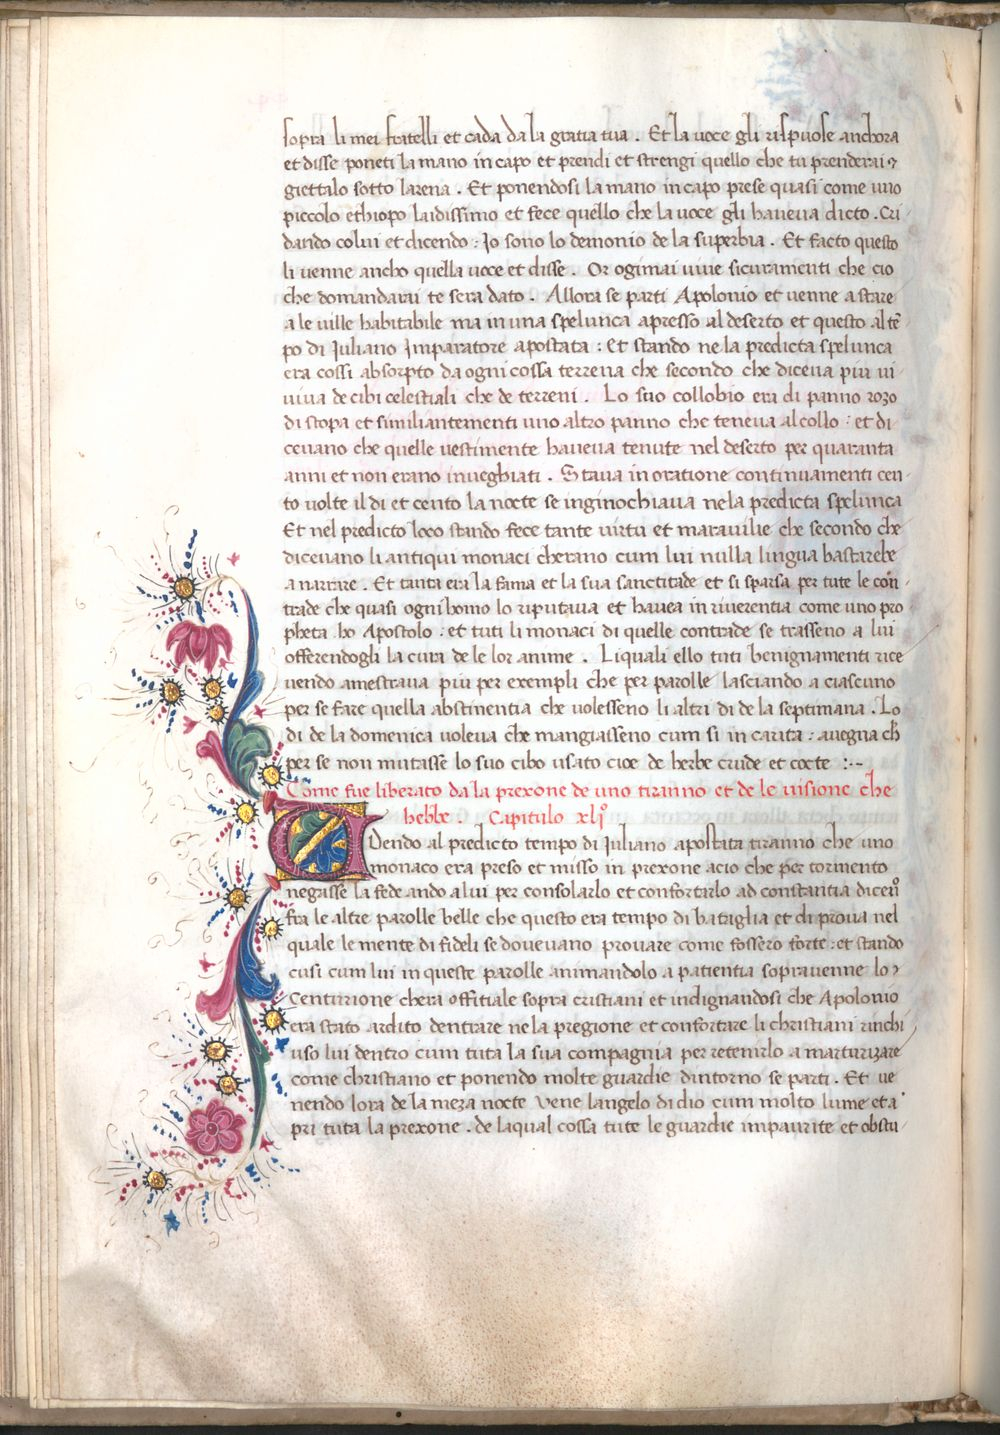 sopra li mei fratelli et cada da la gratia tua . Et la uoce gli rispuose anchora
et disse poneti la mano in capo et prendi et strengi quello che tu prenderai ⁊
giettalo sotto larena . Et ponendosi la mano in capo prese quasi come uno
piccolo ethiopo laidissimo et fece quello che la uoce gli haueua dicto . Cri
dando colui et dicendo : Io sono lo demonio de la superbia . Et facto questo
li uenne ancho quella uoce et disse . Or ogimai uiue sicuramenti che cio
che domandarai te sera dato . Allora se parti Apolonio et uenne a stare
a le uille habitabile ma in una spelunca apresso al deserto et questo al tẽ
po di Iuliano Imparatore apostata : Et stando ne la predicta spelunca
era cossi absorpto da ogni cossa terrena che secondo che diceua piu ui
uiua de cibi celestiali che de terreni . Lo suo collobio era di panno rozo
di stopa et similiantementi uno altro panno che teneua al collo : et di
ceuano che quelle uestimente haueua tenute nel deserto per quaranta
anni et non erano inueghiati . Staua in oratione continuamenti cen
to uolte il di et cento la nocte se inginochiaua ne la predicta spelunca
Et nel predicto loco stando fece tante uirtu et marauilie che secondo che
diceuano li antiqui monaci cherano cum lui nulla lingua bastarebe
a narrare . Et tanta era la fama et la sua sanctitade et si sparsa per tute le con
trade che quasi ogni homo lo riputaua et hauea in riuerentia come uno pro
pheta ho Apostolo : et tuti li monaci di quelle contrade se trasseno a lui
offerendogli la cura de le lor anime . Li quali ello tuti benignamenti rice
uendo amestraua piu per exempli che per parolle lasciando a ciascuno
per se fare quella abstinentia che uolesseno li altri di de la septimana . Lo
di de la domenica uoleua che mangiasseno cum si in carita : auegna ch̃
per se non mutasse lo suo cibo usato cioe de herbe crude et cocte :~
Come fue liberato da la prexone de uno tiranno et de le uisione che
hebbe . Capitulo xlj°
UDendo al predicto tempo di Iuliano apostata tiranno che uno
monaco era preso et misso in prexone acio che per tormento
negasse la fede ando a lui per consolarlo et confortarlo ad constantia dicẽdo
fra le altre parolle belle che questo era tempo di bataglia et di proua nel
quale le mente di fideli se doueuano prouare come fossero forte : et stando
cusi cum lui in queste parolle animandolo a patientia soprauenne lo
Centurione chera offitiale sopra cristiani et indignandosi che Apolonio
era stato ardito dentrare ne la pregione et confortare li christiani rinchi
uso lui dentro cum tuta la sua compagnia per retenirlo a marturizare
come christiano et ponendo molte guardie dintorno se parti . Et ue
nendo lora de la meza nocte uene langelo di dio cum molto lume et a
pri tuta la prexone . de la qual cossa tute le guardie impaurite et obstu